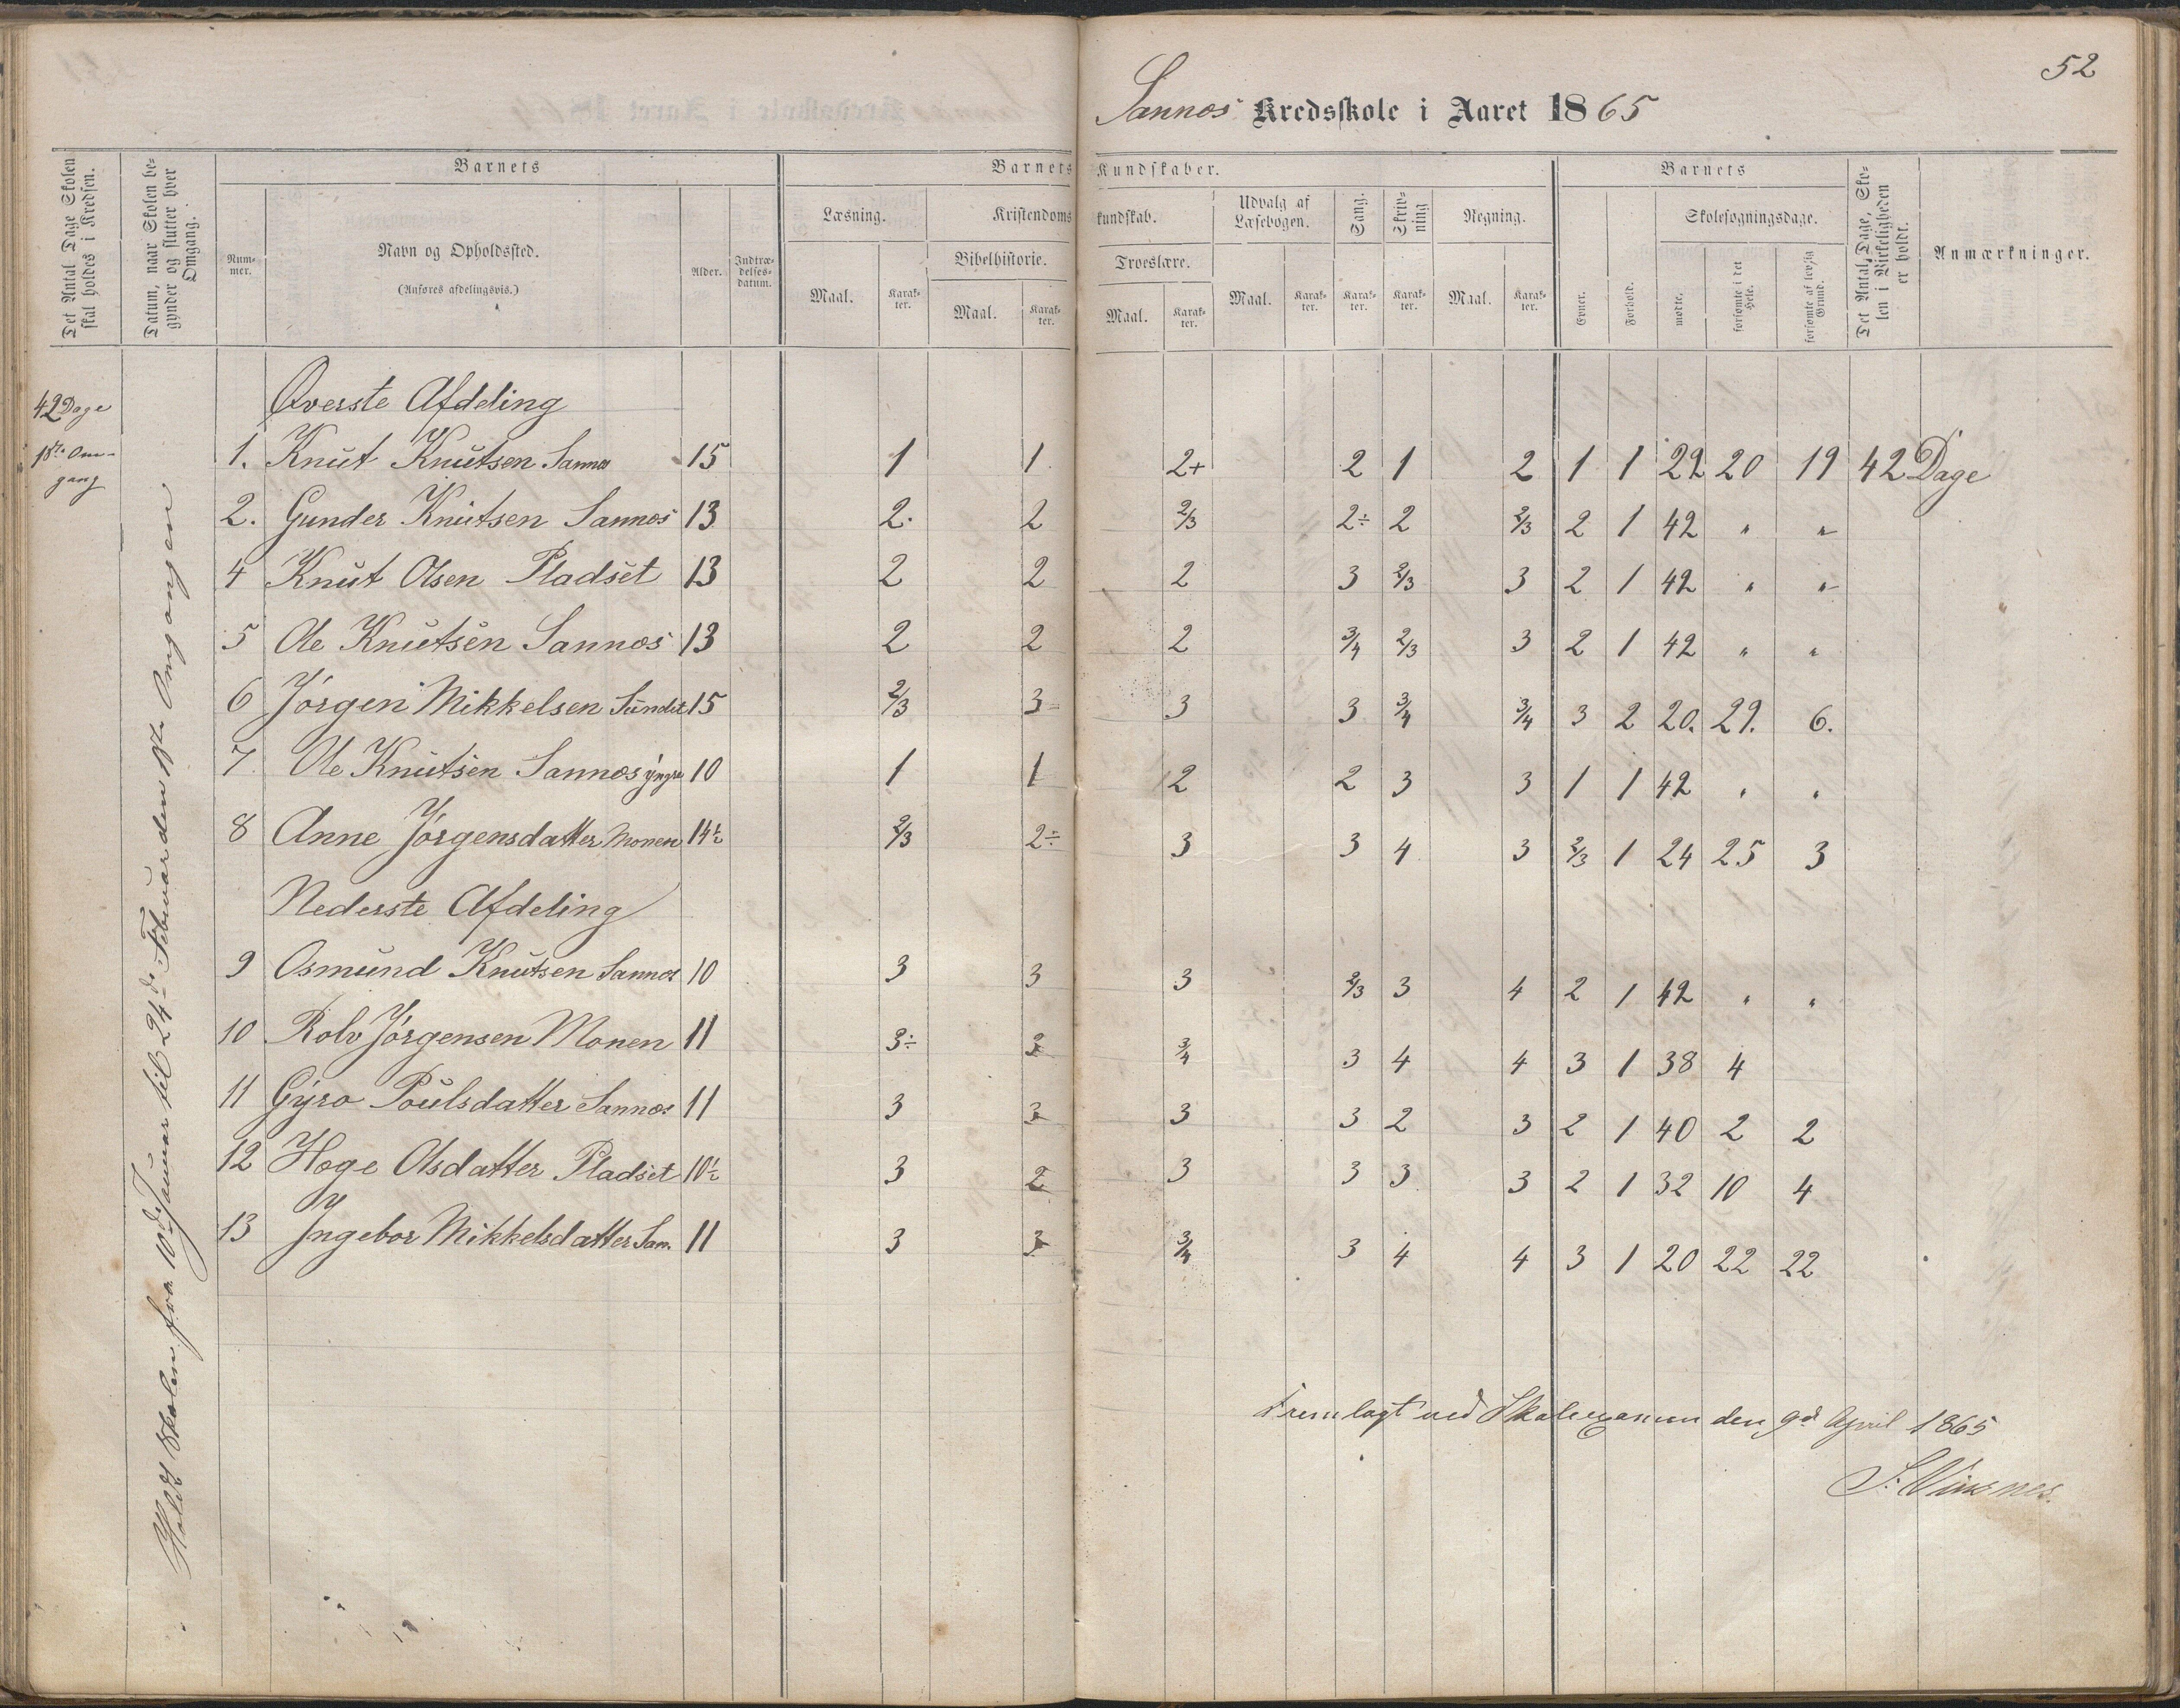 52
Sannes Kredsskole i Aaret 1865
Det Antal Dage Skolen skal holdes i Kredsen.
Datum, naar Skolen begynder og slutter hver Omgang.
Barnets
Nummer.
Navn og Opholdssted.
(Anføres afdelingsvis.)
Alder.
Indtrædelsesdatum.
Barnets Kundskaber.
Læsning.
Maal.
Karakter.
Kristendomskundskab.
Bibelhistorie.
Maal.
Karakter.
Troeslære.
Maal.
Karakter.
Udvalg af Læsebogen.
Maal.
Karakter.
Sang.
Karakter.
Skrivning
Karakter.
Regning.
Maal.
Karakter.
Barnets
Evner.
Forhold.
Skolesøgningsdage.
mødte.
forsømte i det Hele.
forsømte af lovlig Grund.
Det Antal Dage, Skolen i Virkeligheden er holdt.
Anmærkninger.
42 Dage
1ste Om-
gang
Holdt Skolen fra 10de Januar til 24de Februar den 1ste Omgangen
Øverste Afdeling
1. Knut Knutsen Sannes 15 1 1 2+ 2 1 2 1 1 22 20 19 42 Dage
2. Gunder Knutsen Sannes 13 2. 2 2/3 2÷ 2 2/3 2 1 42 " "
4 Knut Olsen Pladset 13 2 2 2 3 2/3 3 2 1 42 " "
5 Ole Knutsen Sannes 13 2 2 2 3/4 2/3 3 2 1 42 " "
6 Jørgen Mikkelsen Sundet 15 2/3 3 3 3 3/4 3/4 3 2 20. 22. 6.
7 Ole Knutsen Sannes yngre 10 1 1 2 2 3 3 1 1 42 " "
8 Anne Jørgensdatter Monen 14½ 2/3 2÷ 3 3 4 3 2/3 1 24 25 3
Nederste Afdeling
9 Osmund Knutsen Sannes 10 3 3 3 2/3 3 4 2 1 42 " "
10 Rolv Jørgensen Monen 11 3÷ 3 3/4 3 4 4 3 1 38 4
11 Gyro Poulsdatter Sannes 11 3 3 3 3 2 3 2 1 40 2 2
12 Hoge Olsdatter Pladset 10½ 3 2 3 3 3 3 2 1 32 10 4
13 Ingebor Mikkelsdatter San. 11 3 3 3/4 3 4 4 3 1 20 22 22
Fremlagt ved Skoleexamen den 9de April 1865
S. Vinsnes.